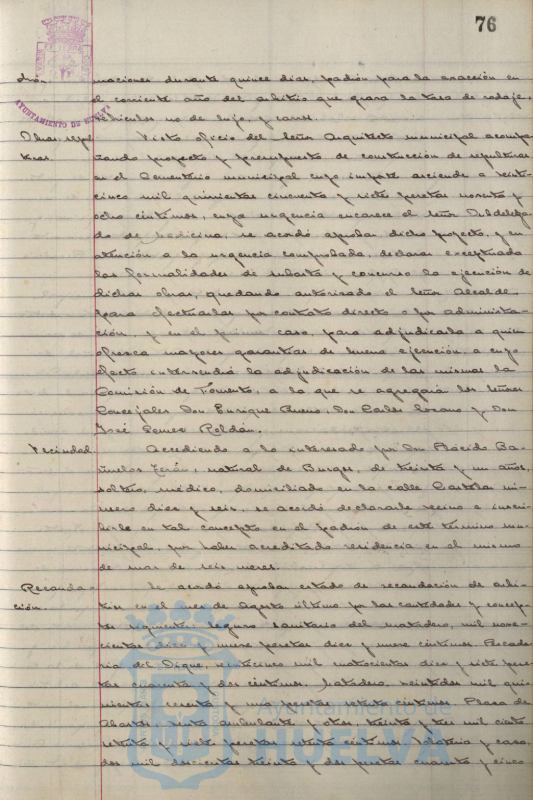 76
AYUNTAMIENTO DE HUELVA
maciones durante quince dias, padrón para la exacción en
el corriente año del arbitrio que grava la tasa de rodaje,
vehículos no de lujo, y carros.
Obras sepul
turas.
Visto oficio del Señor Arquitecto municipal acompa
ñando proyecto y presupuesto de construcción de sepulturas
en el Cementerio municipal cuyo importe asciende a veinte
cinco mil quinientas cincuenta y siete pesetas noventa y
ocho céntimos, cuya urgencia encarece el Señor Subdelega
do de Medicina, se acordó aprobar dicho proyecto, y en
atención a la urgencia comprobada, declarar exceptuada
las formalidades de subasta y concurso la ejecución de
dichas obras, quedando autorizado el Señor Alcalde
para efectuarlas por contrato directo o por administra
ción, y en el primer caso, para adjudicarla a quien
ofrezca mayores garantías de buena ejecución, a cuyo
efecto intervendrá la adjudicación de las mismas la
Comisión de Fomento, a la que se agregarán los Señores
Concejales Don Enrique Bueno, Don Carlos Lozano y Don
José Gomez Roldán.
Vecindad
Accediendo a lo interesado por Don Plácido Ba
ñuelos Terán, natural de Burgos, de treinta y un años,
soltero, médico, domiciliado en la calle Castelar nú
mero diez y seis, se acordó declararle vecino e inscri
birle en tal concepto en el padrón de este término mu
nicipal, por haber acreditado residencia en el mismo
de mas de seis meses.
Recauda-
ción.
Se acordó aprobar estado de recaudación de arbi
trios en el mes de Agosto último por las cantidades y concep
tos siguientes: seguro sanitario del matadero, mil nove
cientas diez y nueve pesetas diez y nueve céntimos. Pescade
ria del Dique, veinticinco mil cuatrocientas diez y siete pese
tas y dos céntimos. Matadero, veintidos mil qui
nientas sesenta y una pesetas céntimos. Plaza de
Abastos, venta ambulante y otros, treinta y tres mil ciento
setenta y siete pesetas céntimos. y casa,
dos mil doscientas treinta y dos pesetas cuarenta y cinco
Ayuntamiento de
HUELVA